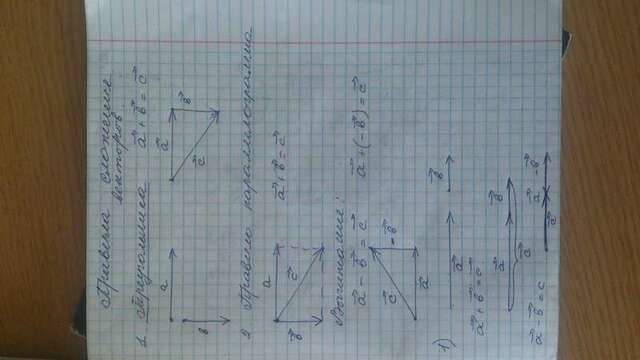 Правила сложения
векторов.
1 Треугольника a⃗ + b⃗ = c⃗
a a⃗
в c⃗ b⃗
2 Правило параллелограмма
a a⃗ + b⃗ = c⃗
b⃗ c⃗
Вычитание:
a⃗ - b⃗ = c⃗ a⃗ + (-b⃗) = c⃗
c⃗ -b⃗
a⃗
1)
a⃗ b⃗
a⃗ + b⃗ = c⃗
a⃗ b⃗
c⃗
a⃗ - b⃗ = c a⃗ -b⃗
c⃗